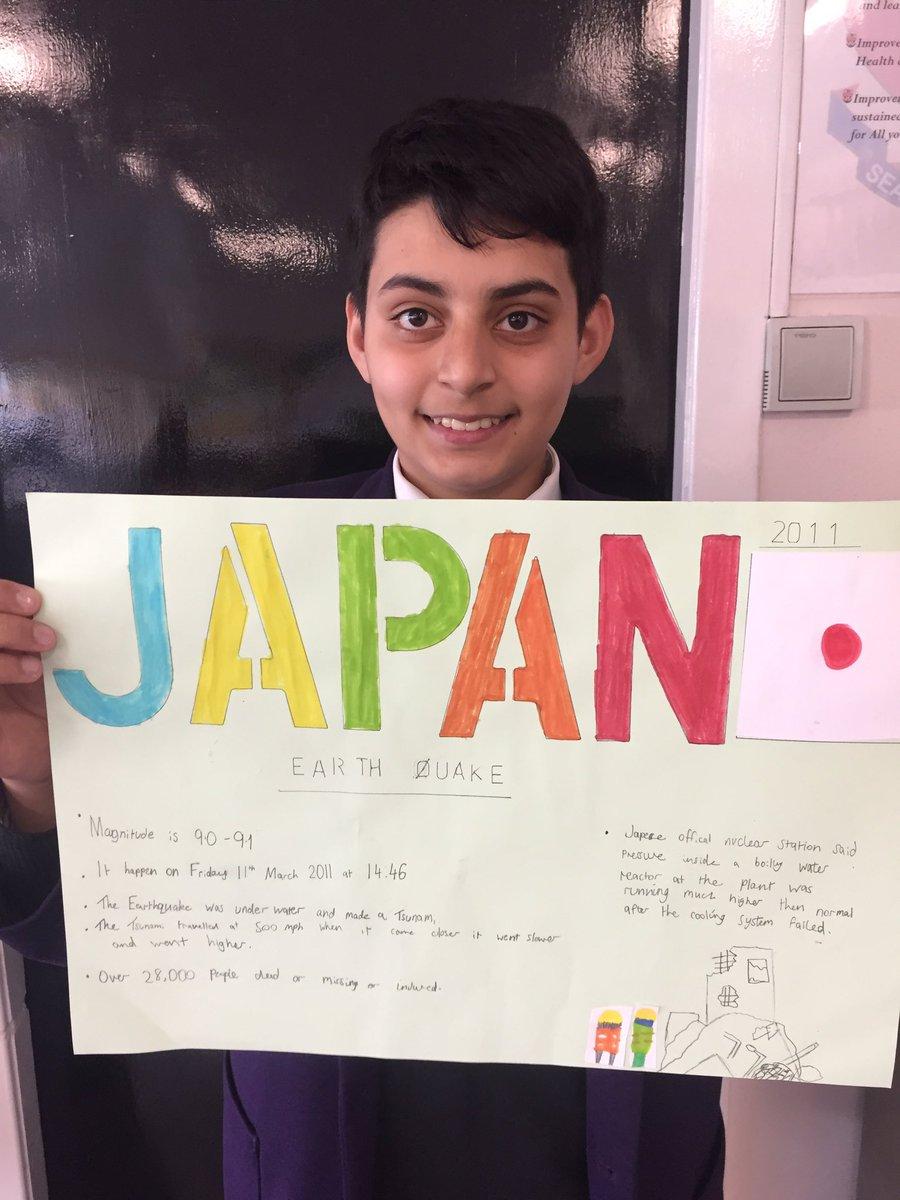 and lea
Improve
Health
Improve
sustained
for All yo
SEA
JAPAN
2011
EARTH QUAKE
• Magnitude is 9.0 - 9.1
• It happen on Friday 11th March 2011 at 14.46
• The Earthquake was under water and made a Tsunami,
• The Tsunami travelled at 500 mph when it came closer it went slower
and went higher.
• Over 28,000 people dead or missing or
• offical nuclear station said
Pressure inside a water
reactor at the plant was
running much higher then normal
after the cooling system failed.